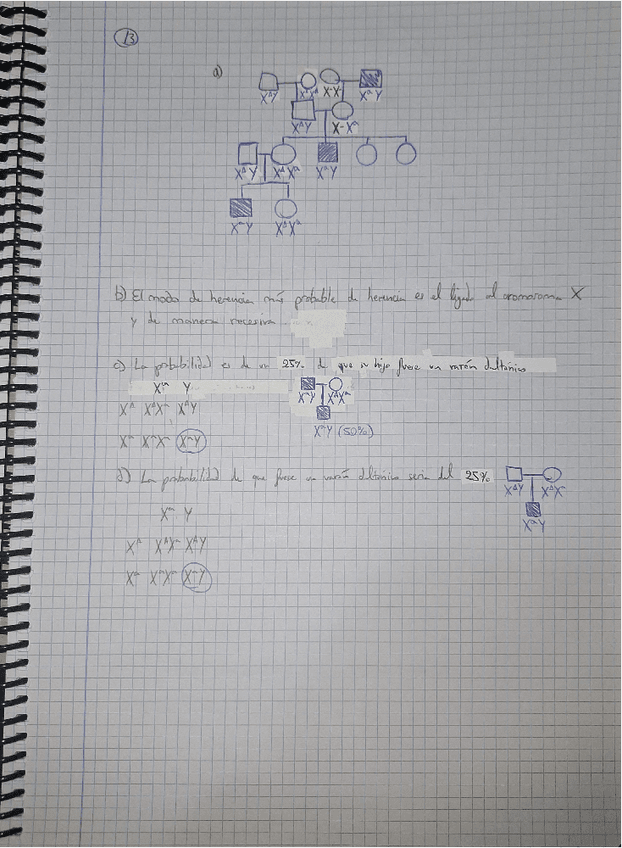 13
a)
XᴬY XᴬXᴬ X-X- XᵃY
XᴬY X-Xᵃ
XᴬY XᴬXᵃ XᵃY
XᵃY XᴬXᵃ
b) El modo de herencia más probable de herencia es el ligado al cromosoma X
y de manera recesiva
c) La probabilidad es de un 25% de que su hijo fuese un varón daltónico
Xᵃ Y
XᵃY XᴬXᵃ
Xᴬ XᴬXᵃ XᴬY
XᵃY (50%)
Xᵃ XᵃXᵃ XᵃY
d) La probabilidad de que fuese un varón daltónico seria del 25%
XᴬY XᴬXᵃ
XᵃY
Xᵃ Y
Xᴬ XᴬXᵃ XᴬY
Xᵃ XᵃXᵃ XᵃY